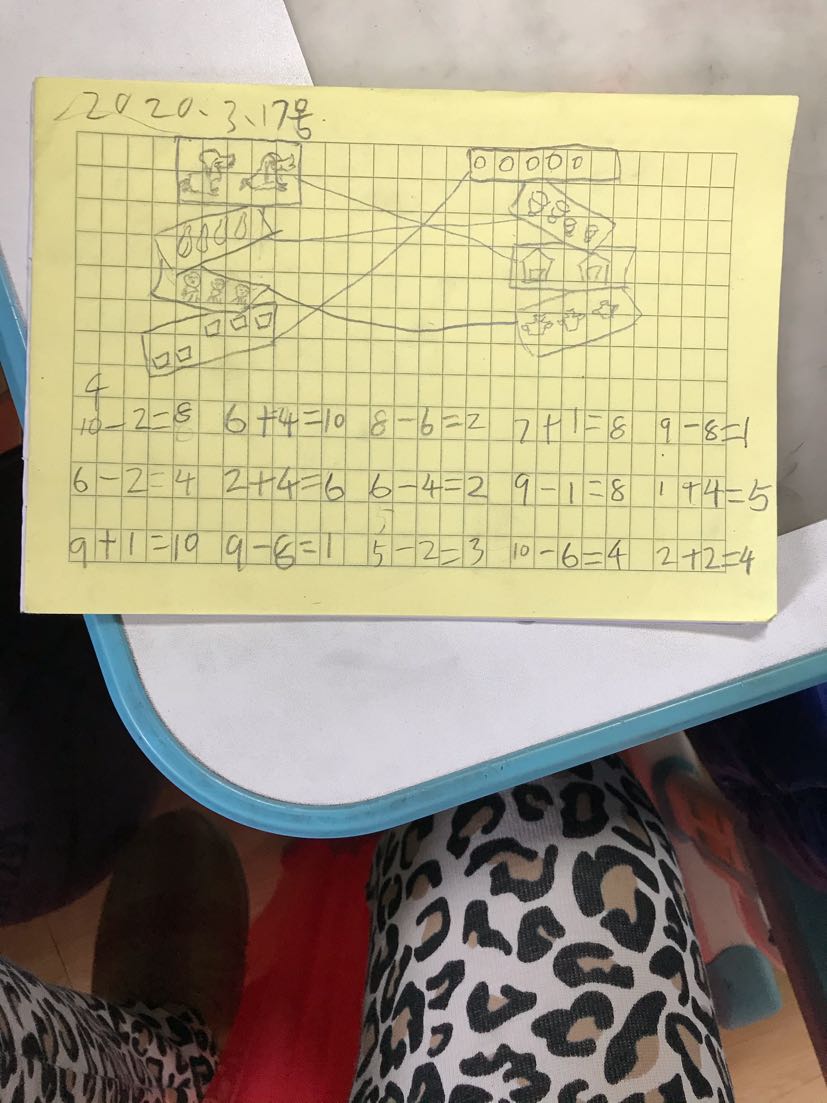 2020、3、17号
4
10-2=8 6+4=10 8-6=2 7+1=8 9-8=1
6-2=4 2+4=6 6-4=2 9-1=8 1+4=5
9+1=10 9-8=1 5-2=3 10-6=4 2+2=4